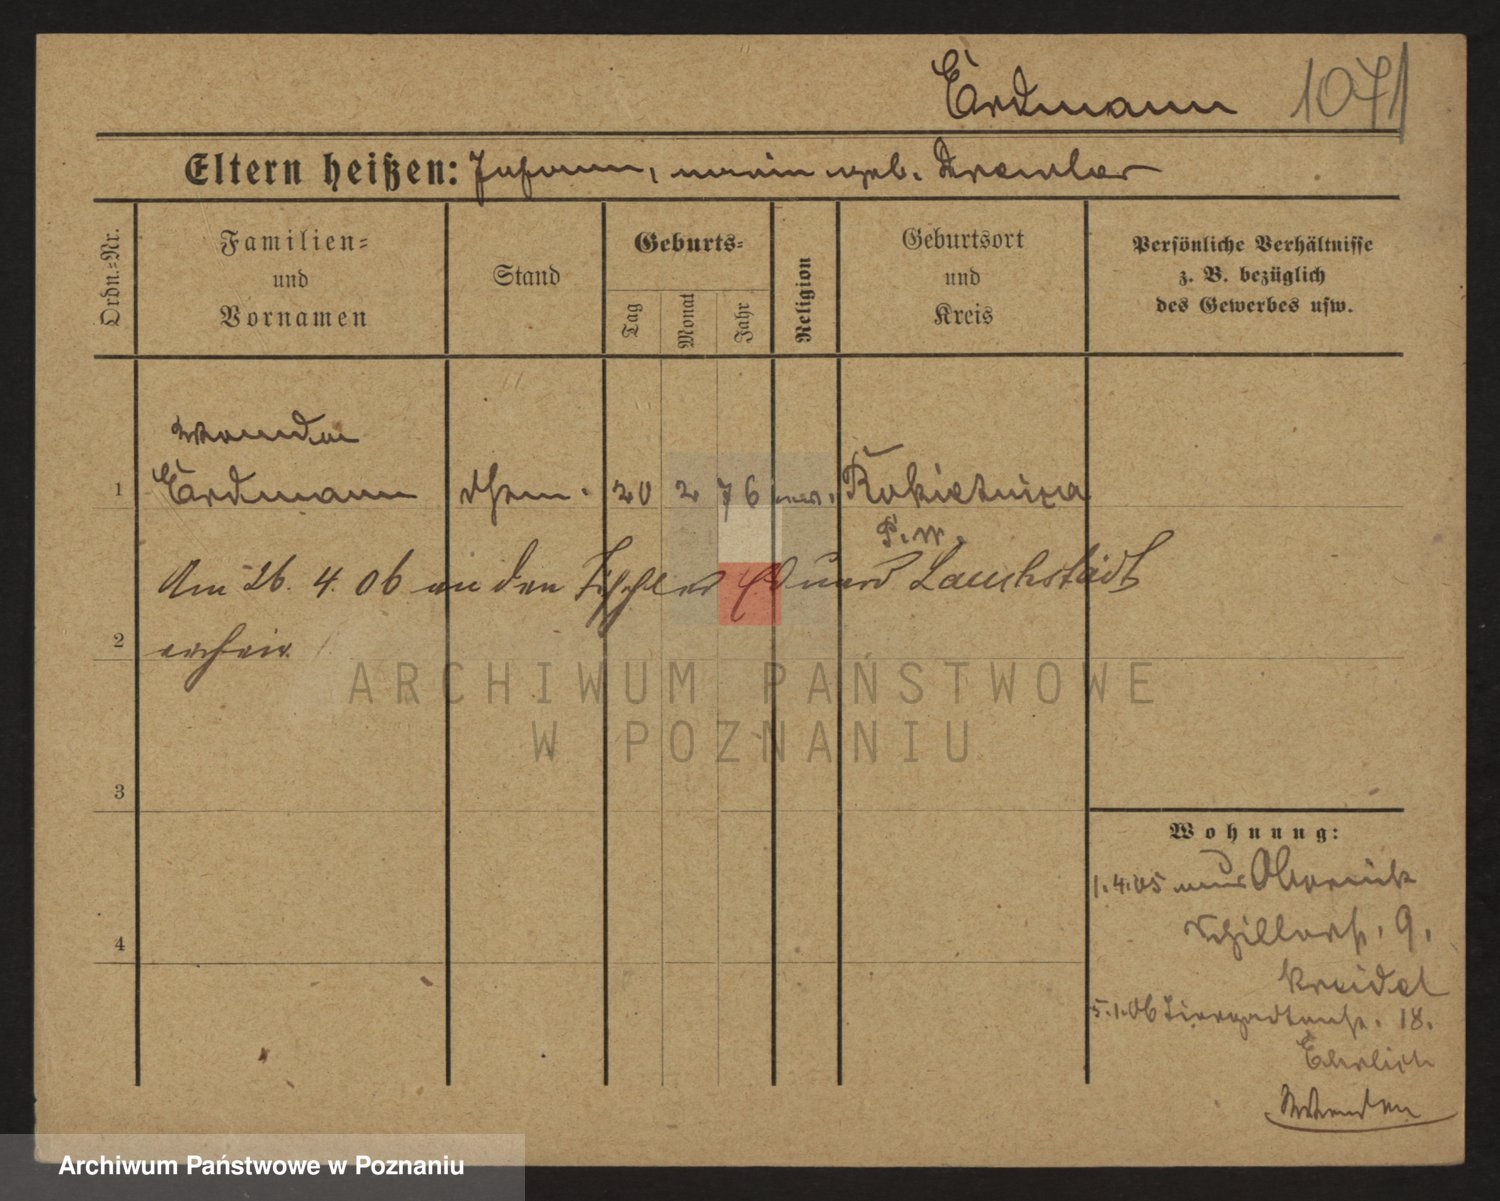 Erdmann 1071
Eltern heißen: Johann, Maria geb. Drechsler
Ordn.-Nr.
Familien-
und
Vornamen
Stand
Geburts-
Tag
Monat
Jahr
Religion
Geburtsort
und
Kreis
Persönliche Verhältnisse
z. B. bezüglich
des Gewerbes usw.
Wanda
1 Erdmann 20 2 76 Rokietnica
P. W.
Am 26. 4. 06 an den Tischler Eduard Lauchstädt
2
ARCHIWUM PAŃSTWOWE
W POZNANIU
3
Wohnung:
1.4.05 aus Obornik
4 Schillerstr. 9.
Kreidel
5.1.06 Tiergartenstr. 18.
Ehrlich
Archiwum Państwowe w Poznaniu